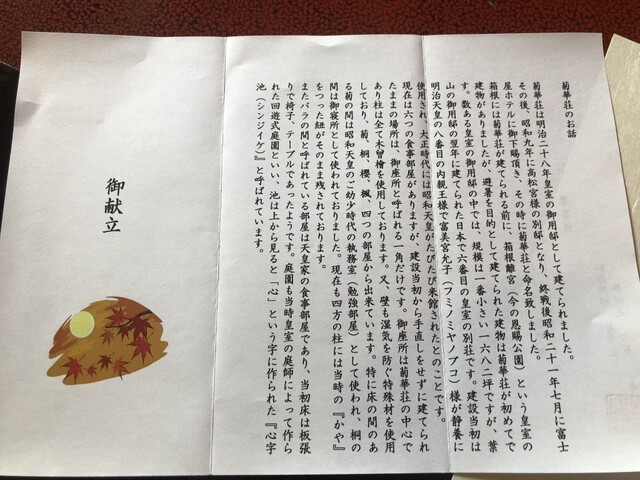 菊華荘のお話
菊華荘は明治二十八年皇室の御用邸として建てられました。
その後、昭和九年に高松宮様の別邸となり、終戦後昭和二十一年七月に富士
屋ホテルに御下賜頂き、その時に菊華荘と命名致しました。
箱根には菊華荘が建てられる前に、箱根離宮（今の恩賜公園）という皇室の
建物がありましたが、避暑を目的として建てられた建物は菊華荘が初めてで
す。数ある皇室の御用邸の中では、規模は一番小さい一六八二坪ですが、葉
山の御用邸の翌年に建てられた日本で六番目の皇室の別荘です。建設当初は
明治天皇の八番目の内親王様で富美宮允子（フミノミヤノブコ）様が静養に
使用され、大正時代には昭和天皇がたびたび来館されたとのことです。
現在は六つの食事部屋がありますが、建設当初から手直しをせずに建てられ
たままの場所は、御座所と呼ばれる一角だけです。御座所は菊華荘の中心で
あり柱は全て木曽檜を使用しております。又、壁も湿気を防ぐ特殊材を使用
しており、菊、桐、櫻、楓、四つの部屋から出来ています。特に床の間のあ
る菊の間は昭和天皇のご幼少時代の執務室（勉強部屋）として使われ、桐の
間は御寝所として使われておりました。現在も四方の柱には当時の『かや』
をつった紐がそのまま残されております。
またバラの間と呼ばれている部屋は天皇家の食事部屋であり、当初床は板張
りで椅子、テーブルであったようです。庭園も当時皇室の庭師によって作ら
れた回遊式庭園といい、池は上から見ると「心」という字に作られた『心字
池（シンジイケ）』と呼ばれています。
御献立